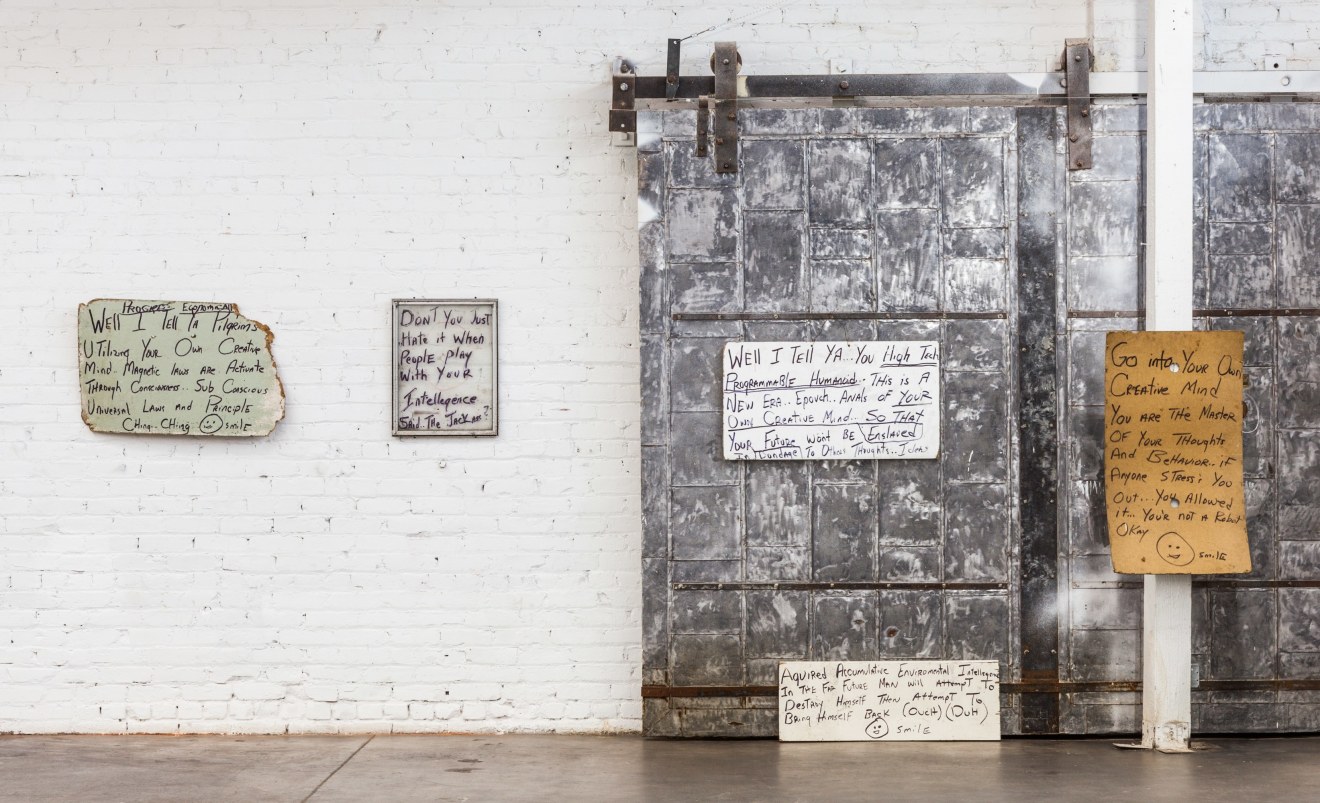 PROGRESS ECONOMICALLY
WELL I TELL YA PILGRIMS
UTILIZING YOUR OWN CREATIVE
MIND. MAGNETIC LAWS ARE ACTIVATE
THROUGH CONCIOUSNESS.. SUB CONSCIOUS
UNIVERSAL LAWS AND PRINCIPLE
CHING.. CHING SMILE
DON'T YOU JUST
HATE it WHEN
PEOPLE PLAY
WITH YOUR
INTELLEGENCE
SAID. THE JACKASS?
WELL I TELL YA... YOU HIGH TECH
PROGRAMMABLE HUMANOID.. THIS IS A
NEW ERA.. EPOUCH.. ANALS OF YOUR
OWN CREATIVE MIND... SO THAT
YOUR FUTURE WONT BE ENSLAVED
IN BUNDAGE TO OTHERS THOUGHTS...
AQUIRED ACCUMULATIVE ENVIROMENTAL INTELLEGENCE
IN THE FAR FUTURE MAN WILL ATTEMPT TO
DESTROY HIMSELF THEN ATTEMPT TO
BRING HIMSELF BACK (OUCH) (DUH)
SMILE
GO into YOUR OWN
CREATIVE MIND
YOU ARE THE MASTER
OF YOUR THOUGHTS
AND BEHAVIOR.. if
ANYONE STRESS'S YOU
OUT... YOU ALLOWED
it... YOU'RE NOT A ROBOT
OKAY
SMILE